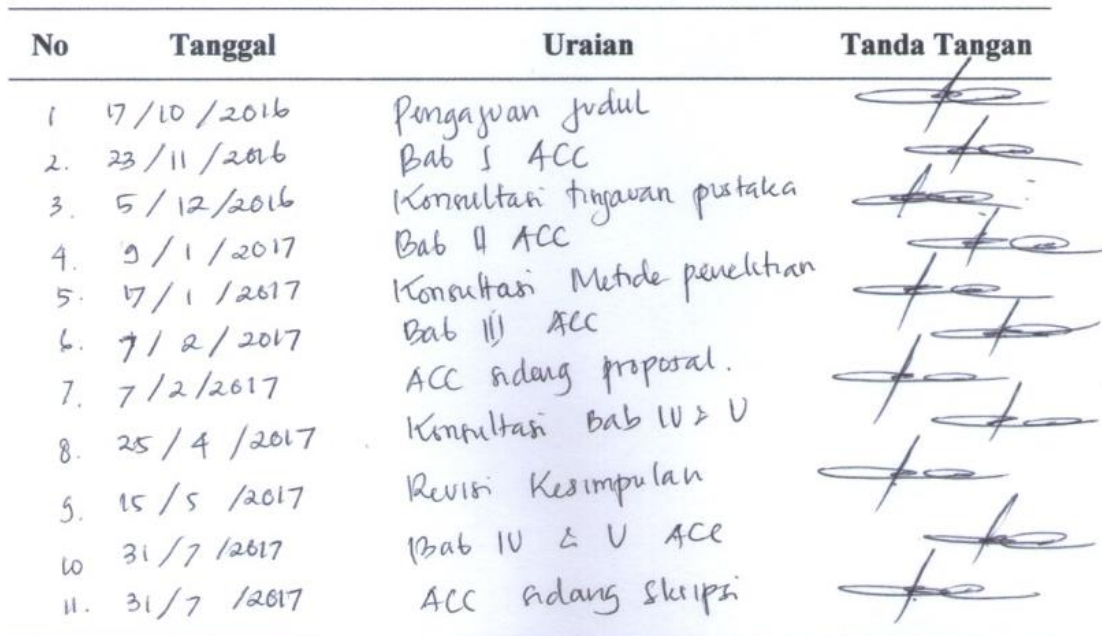 No Tanggal Uraian Tanda Tangan
1 17/10/2016 Pengajuan Judul
2. 23/11/2016 Bab I ACC
3. 5/12/2016 Konsultasi tinjauan pustaka
4. 9/1/2017 Bab II ACC
5. 17/1/2017 Konsultasi Metode penelitian
6. 7/2/2017 Bab III ACC
7. 7/2/2017 ACC sidang proposal.
8. 25/4/2017 Konsultasi Bab IV & V
9. 15/5/2017 Revisi Kesimpulan
10 31/7/2017 Bab IV & V ACC
11. 31/7/2017 ACC sidang Skripsi